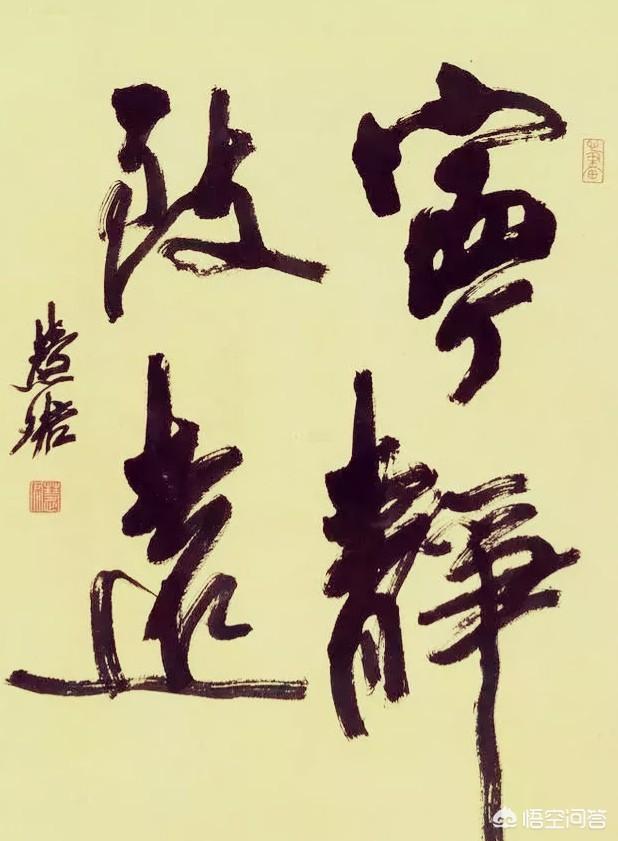 寧靜
致遠
慧珺
悟空问答